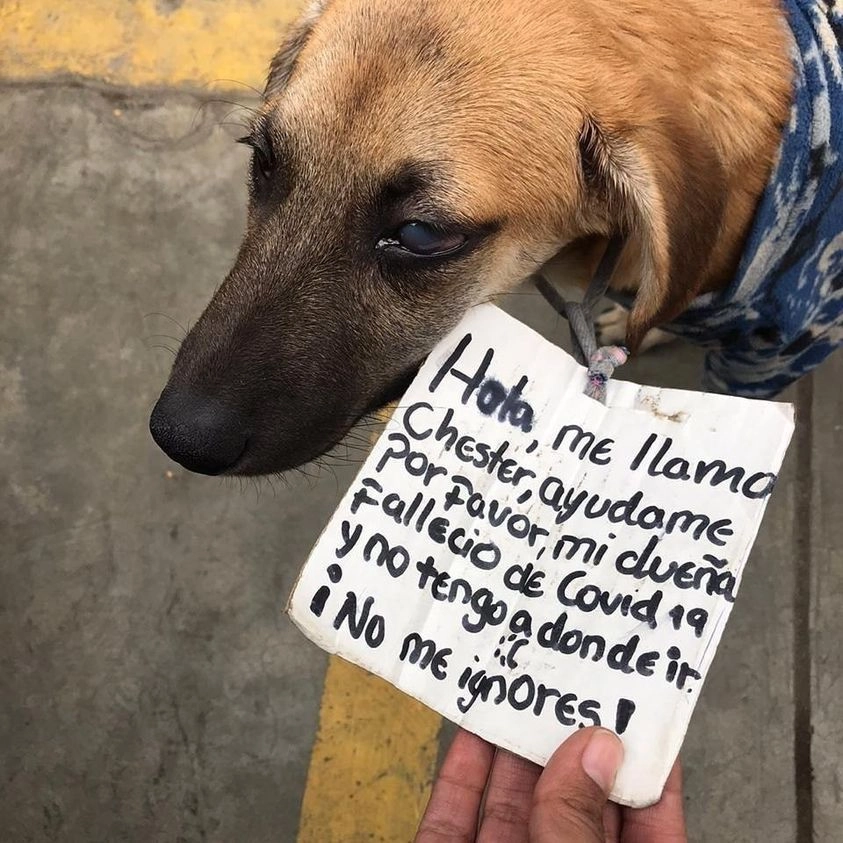 Hola, me llamo
Chester, ayudame
por favor, mi dueña
Fallecio de Covid 19
y no tengo a donde ir.
:(
¡No me ignores!